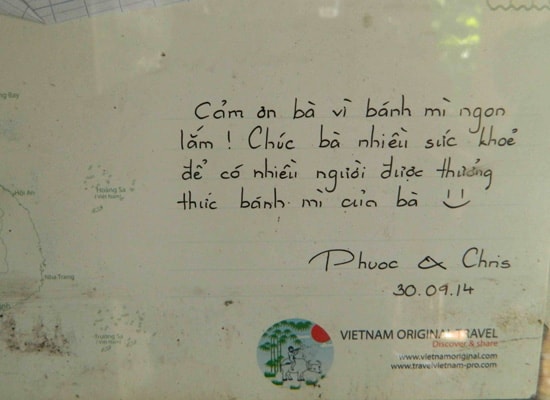 Cảm ơn bà vì bánh mì ngon
lắm! Chúc bà nhiều sức khoẻ
để có nhiều người được thưởng
thức bánh mì của bà
Phuoc & Chris
30.09.14
Hội An
Hoàng Sa
Nha Trang
Trường Sa
VIETNAM ORIGINAL TRAVEL
Discover & share
www.vietnamoriginal.com
www.travelvietnam-pro.com